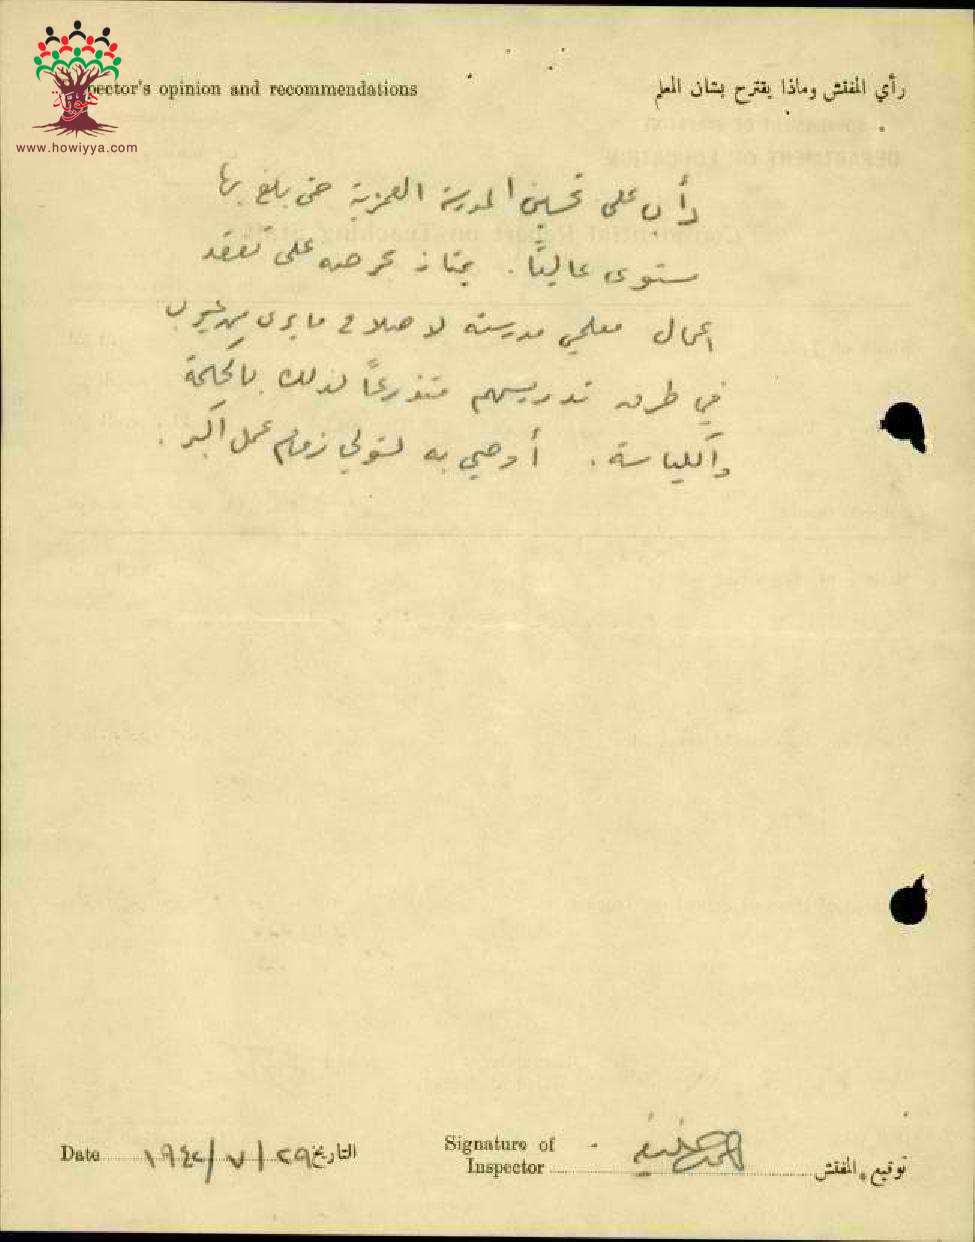 www.howiyya.com
pector's opinion and recommendations
رأي المفتش وماذا يقترح بشان المعلم
دأب على تحسين المدرسة العمرية حتى بلغ بها
مستوى عاليًا. يمتاز بحرصه على تفقد
اعمال معلمي مدرسته لاصلاح ما يرى من عيوب
في طرق تدريسهم متذرعًا لذلك بالحكمة
والكياسة. أوصي به لتولي زمام عمل اكبر.
Date ١٩٤٢/٧/٢٩ التاريخ
Signature of Inspector
توقيع المفتش